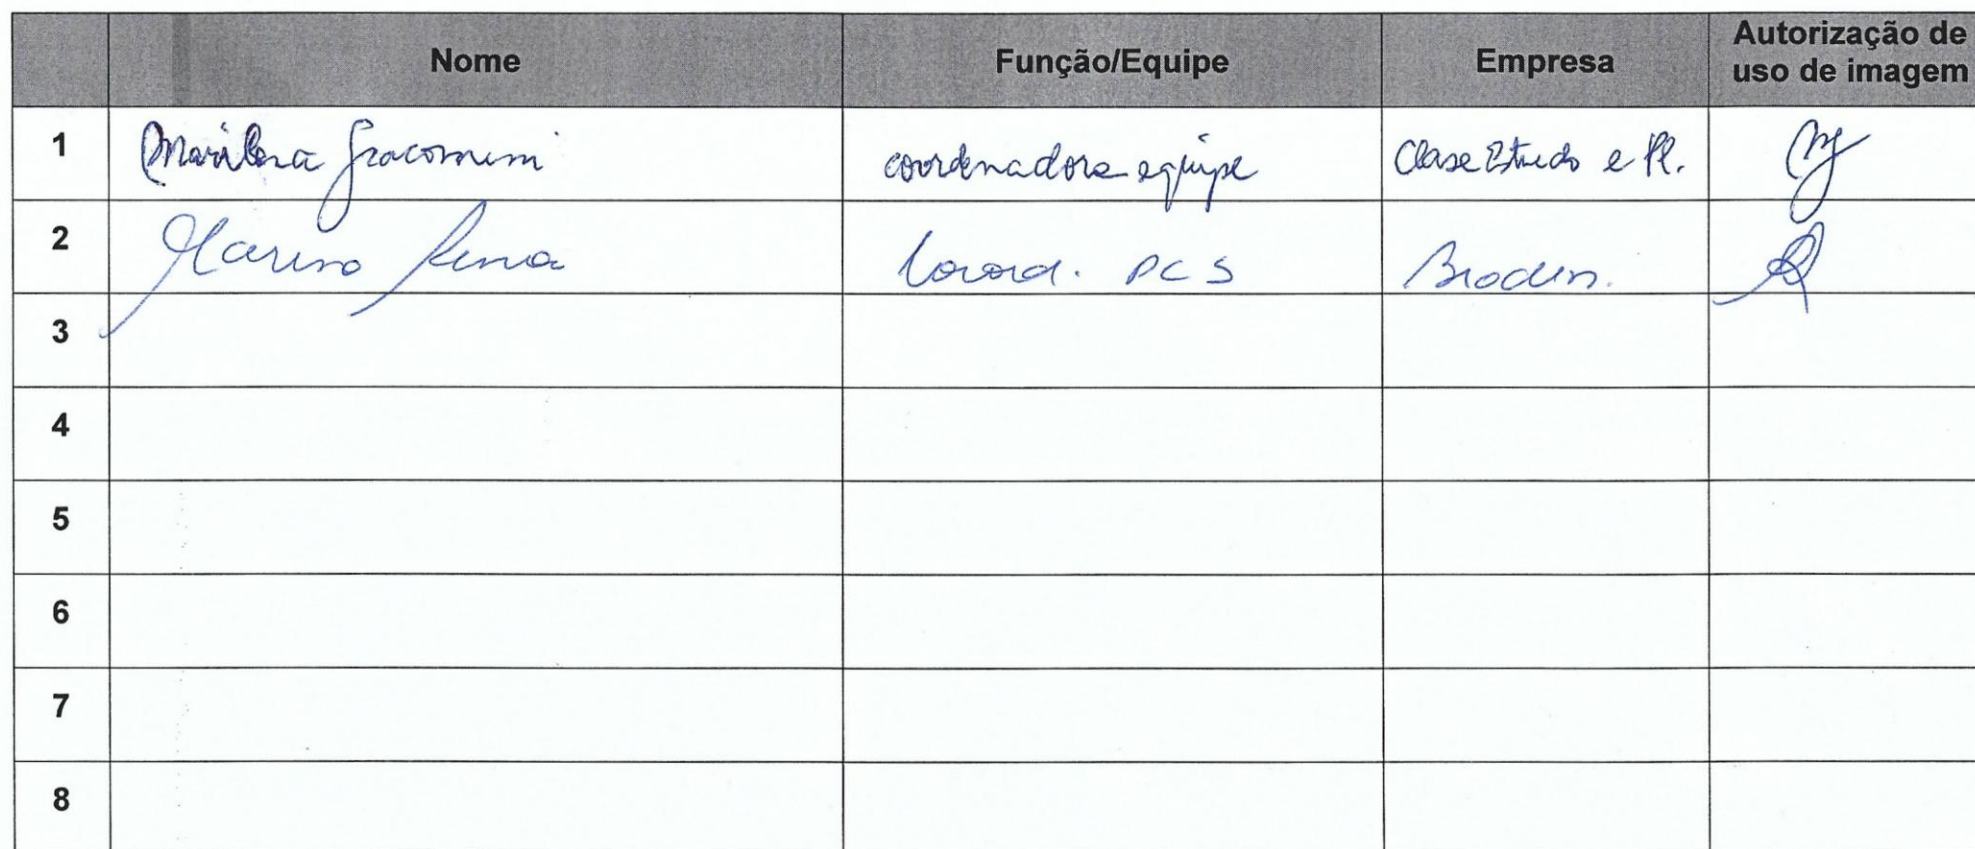 Nome Função/Equipe Empresa Autorização de
uso de imagem
1 Marilena Giacomini coordenadora equipe Clase Estudo e Pl.
2 Coord. PCS
3
4
5
6
7
8